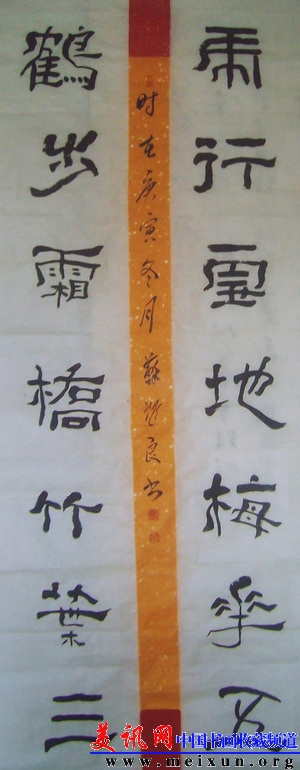 虎行雪地梅花五
时在庚寅冬月蘇良书
鶴步霜橋竹葉三
美讯网 中国书画收藏频道
www.meixun.org